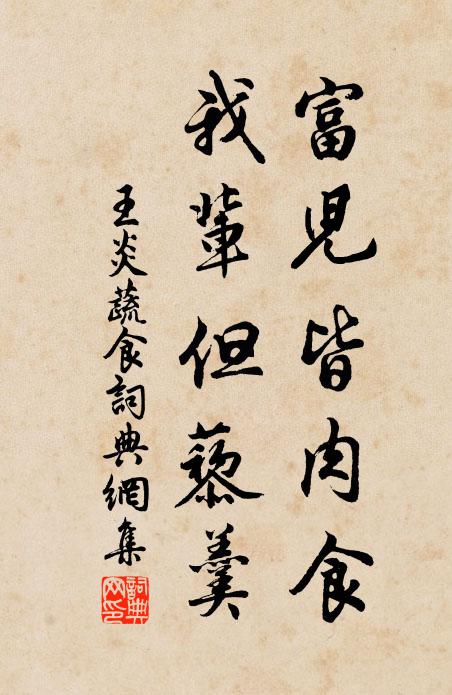 富兒皆肉食
我輩但藜羹
王炎蔬食詞典網集
詞典網印